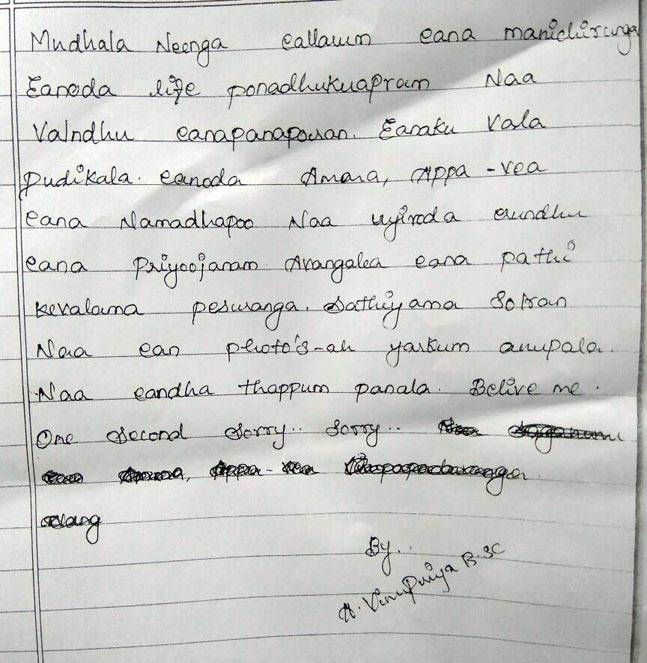 Mudhala Neenga eallarum eana manichirunga
Eanoda life ponadhukuapram Naa
Valndhu eanapanaporan. Eanaku Vala
Pudikala. eanoda Amma, Appa-vea
eana Namadhapoo Naa uyiroda erundhu
eana Priyoojanam Avangalea eana pathi
kevalama pesuranga. Sathiyama Solran
Naa ean photo's-ah yarkum anupala.
Naa eandha thappum panala. Belive me.
One second Sorry.. Sorry..
By..
A. Vinupriya B.SC